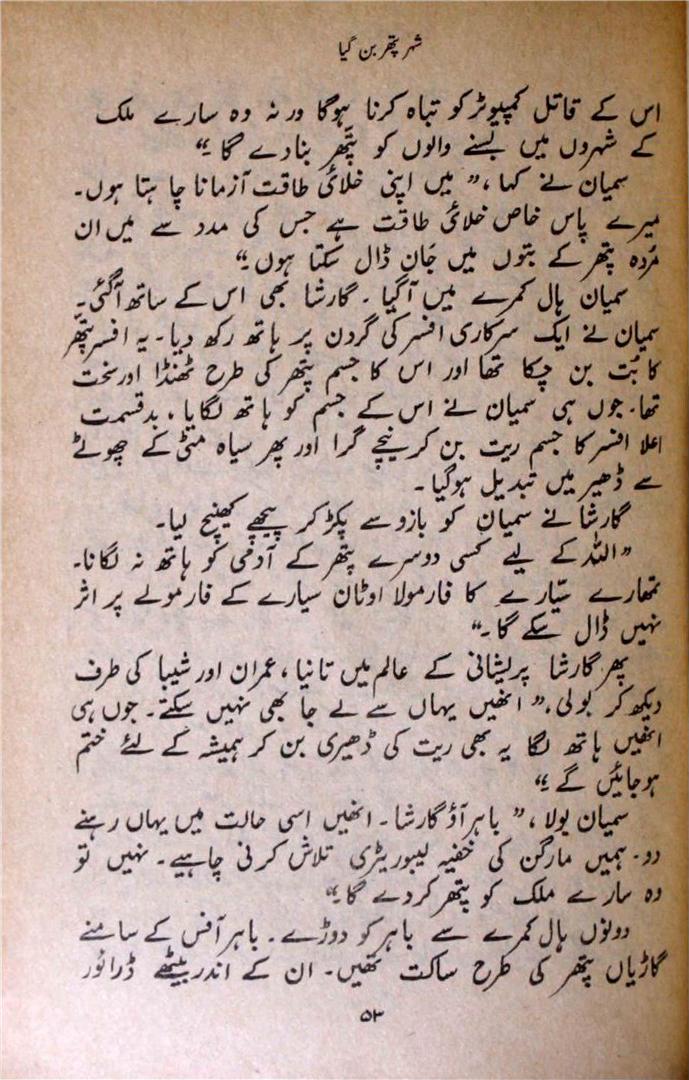 شہر پتھر بن گیا
اس کے قاتل کمپیوٹر کو تباہ کرنا ہوگا ورنہ وہ سارے ملک
کے شہروں میں بسنے والوں کو پتھّر بنا دے گا۔"
سمیان نے کہا، "میں اپنی خلائی طاقت آزمانا چاہتا ہوں۔
میرے پاس خاص خلائی طاقت ہے جس کی مدد سے میں ان
مُردہ پتھر کے بتوں میں جَان ڈال سکتا ہوں۔"
سمیان ہال کمرے میں آگیا۔ گارشا بھی اس کے ساتھ آگئی۔
سمیان نے ایک سرکاری افسر کی گردن پر ہاتھ رکھ دیا۔ یہ افسر پتھّر
کا بُت بن چکا تھا اور اس کا جسم پتھر کی طرح ٹھنڈا اور سخت
تھا۔ جوں ہی سمیان نے اس کے جسم کو ہاتھ لگایا، بدقسمت
اعلا افسر کا جسم ریت بن کر نیچے گرا اور پھر سیاہ مٹی کے چھوٹے
سے ڈھیر میں تبدیل ہوگیا۔
گارشا نے سمیان کو بازو سے پکڑ کر پیچھے کھینچ لیا۔
"اللہ کے لیے کسی دوسرے پتھر کے آدمی کو ہاتھ نہ لگانا۔
تمھارے سیّارے کا فارمولا اوٹان سیارے کے فارمولے پر اثر
نہیں ڈال سکے گا۔"
پھر گارشا پریشانی کے عالم میں تانیا، عمران اور شیبا کی طرف
دیکھ کر بولی، "انھیں یہاں سے لے جا بھی نہیں سکتے۔ جوں ہی
انھیں ہاتھ لگا یہ بھی ریت کی ڈھیری بن کر ہمیشہ کے لئے ختم
ہوجائیں گے۔"
سمیان بولا، "باہر آؤ گارشا۔ انھیں اسی حالت میں یہاں رہنے
دو۔ ہمیں مارگن کی خفیہ لیبوریٹری تلاش کرنی چاہیے۔ نہیں تو
وہ سارے ملک کو پتھر کردے گا۔"
دونوں ہال کمرے سے باہر کو دوڑے۔ باہر آفس کے سامنے
گاڑیاں پتھر کی طرح ساکت تھیں۔ ان کے اندر بیٹھے ڈرائور
۵۳